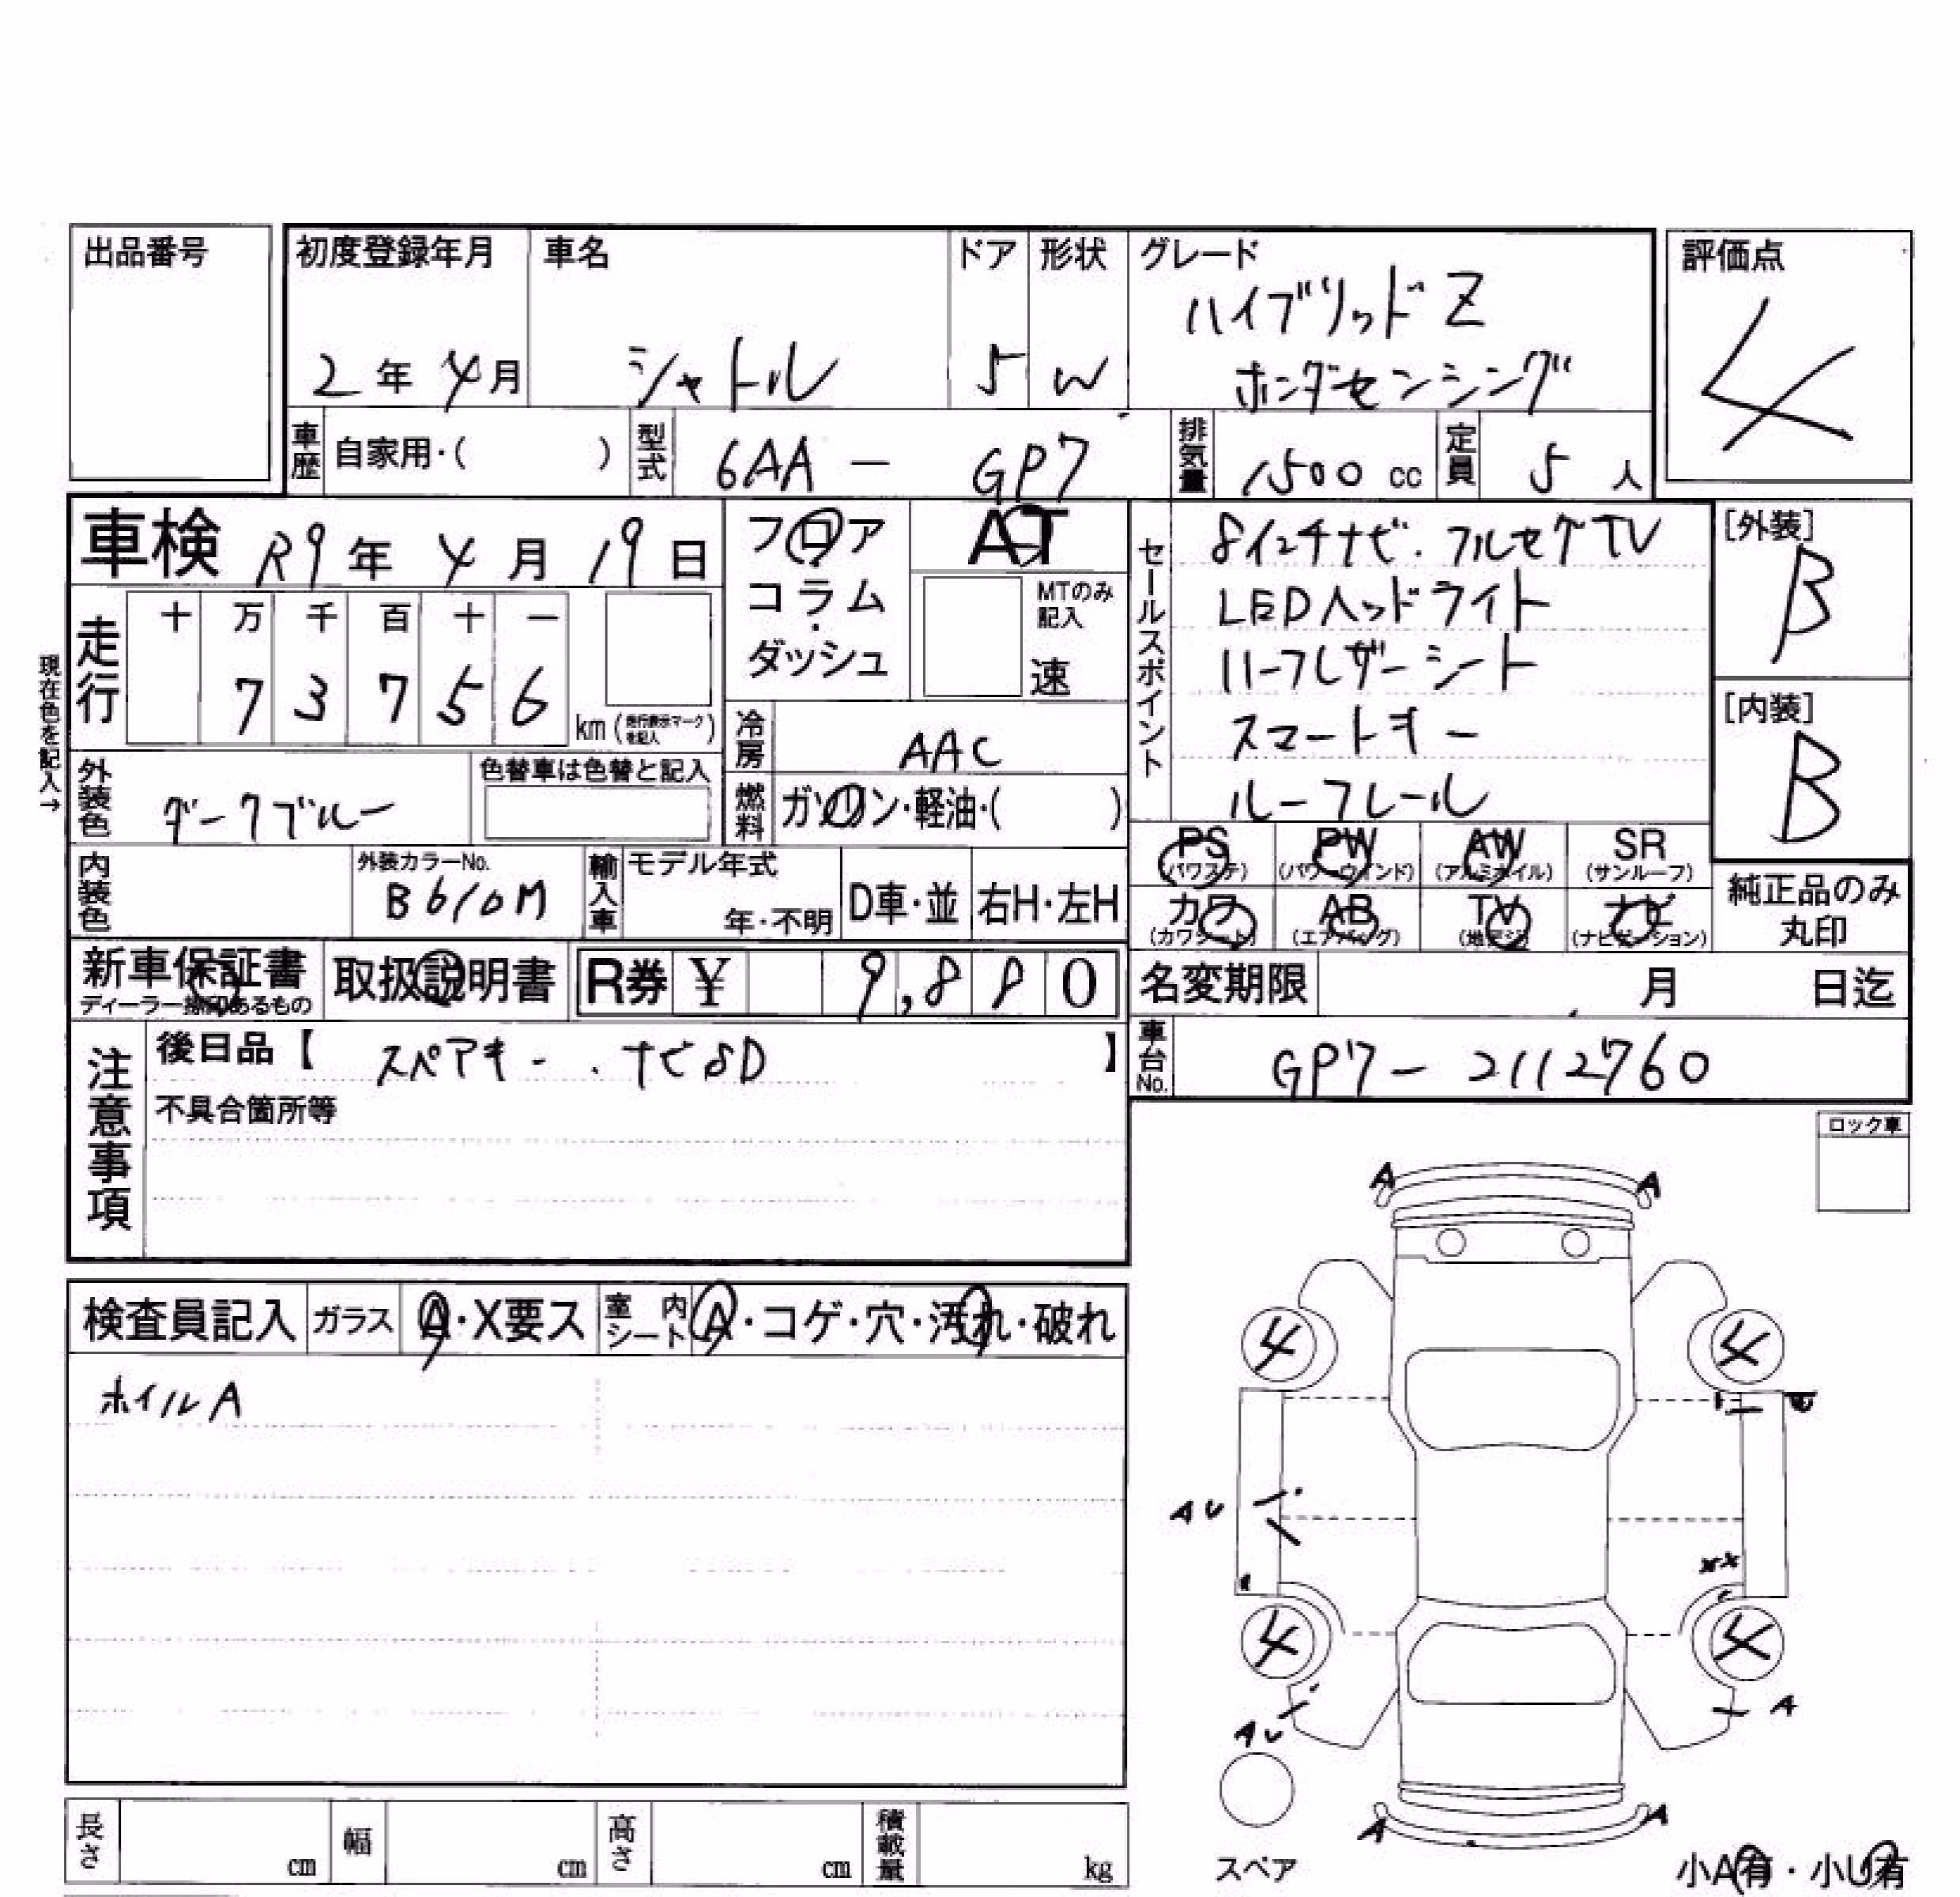 出品番号
初度登録年月
2年4月
車名
シャトル
ドア
5
形状
W
グレード
ハイブリッドZ
ホンダセンシング
評価点
4
車歴
自家用・( )
型式
6AA - GP7
排気量
1500 cc
定員
5 人
車検 R9年4月19日
フロア
コラム
・
ダッシュ
AT
MTのみ
記入
速
セールスポイント
8インチナビ.フルセグTV
LEDヘッドライト
ハーフレザーシート
スマートキー
ルーフレール
[外装]
B
[内装]
B
現在色を記入→
走行
十 万 千 百 十 一
7 3 7 5 6
km (走行表示マークを記入)
冷房
AAC
燃料
ガソリン・軽油・( )
外装色
ダークブルー
色替車は色替と記入
内装色
外装カラーNo.
B610M
輸入車
モデル年式
年・不明
D車・並
右H・左H
PS
(パワステ)
PW
(パワーウインド)
AW
(アルミホイル)
SR
(サンルーフ)
カワ
(カワシート)
AB
(エアバッグ)
TV
(地デジ)
ナビ
(ナビゲーション)
純正品のみ
丸印
新車保証書
ディーラー捺印あるもの
取扱説明書
R券 ¥ 9,880
名変期限
月 日迄
注意事項
後日品【 スペアキー . ナビSD 】
不具合箇所等
車台No.
GP7-2112760
ロック車
検査員記入
ガラス
A・X要ス
室内
シート
A・コゲ・穴・汚れ・破れ
ホイルA
A A
4 4
AU
4 4
AU A
A A
スペア
小A有・小U有
長さ cm
幅 cm
高さ cm
積載量 kg